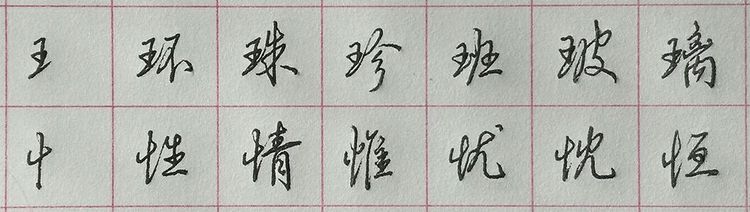 王 环 珠 珍 班 玻 璃
忄 性 情 惟 忧 忱 恒